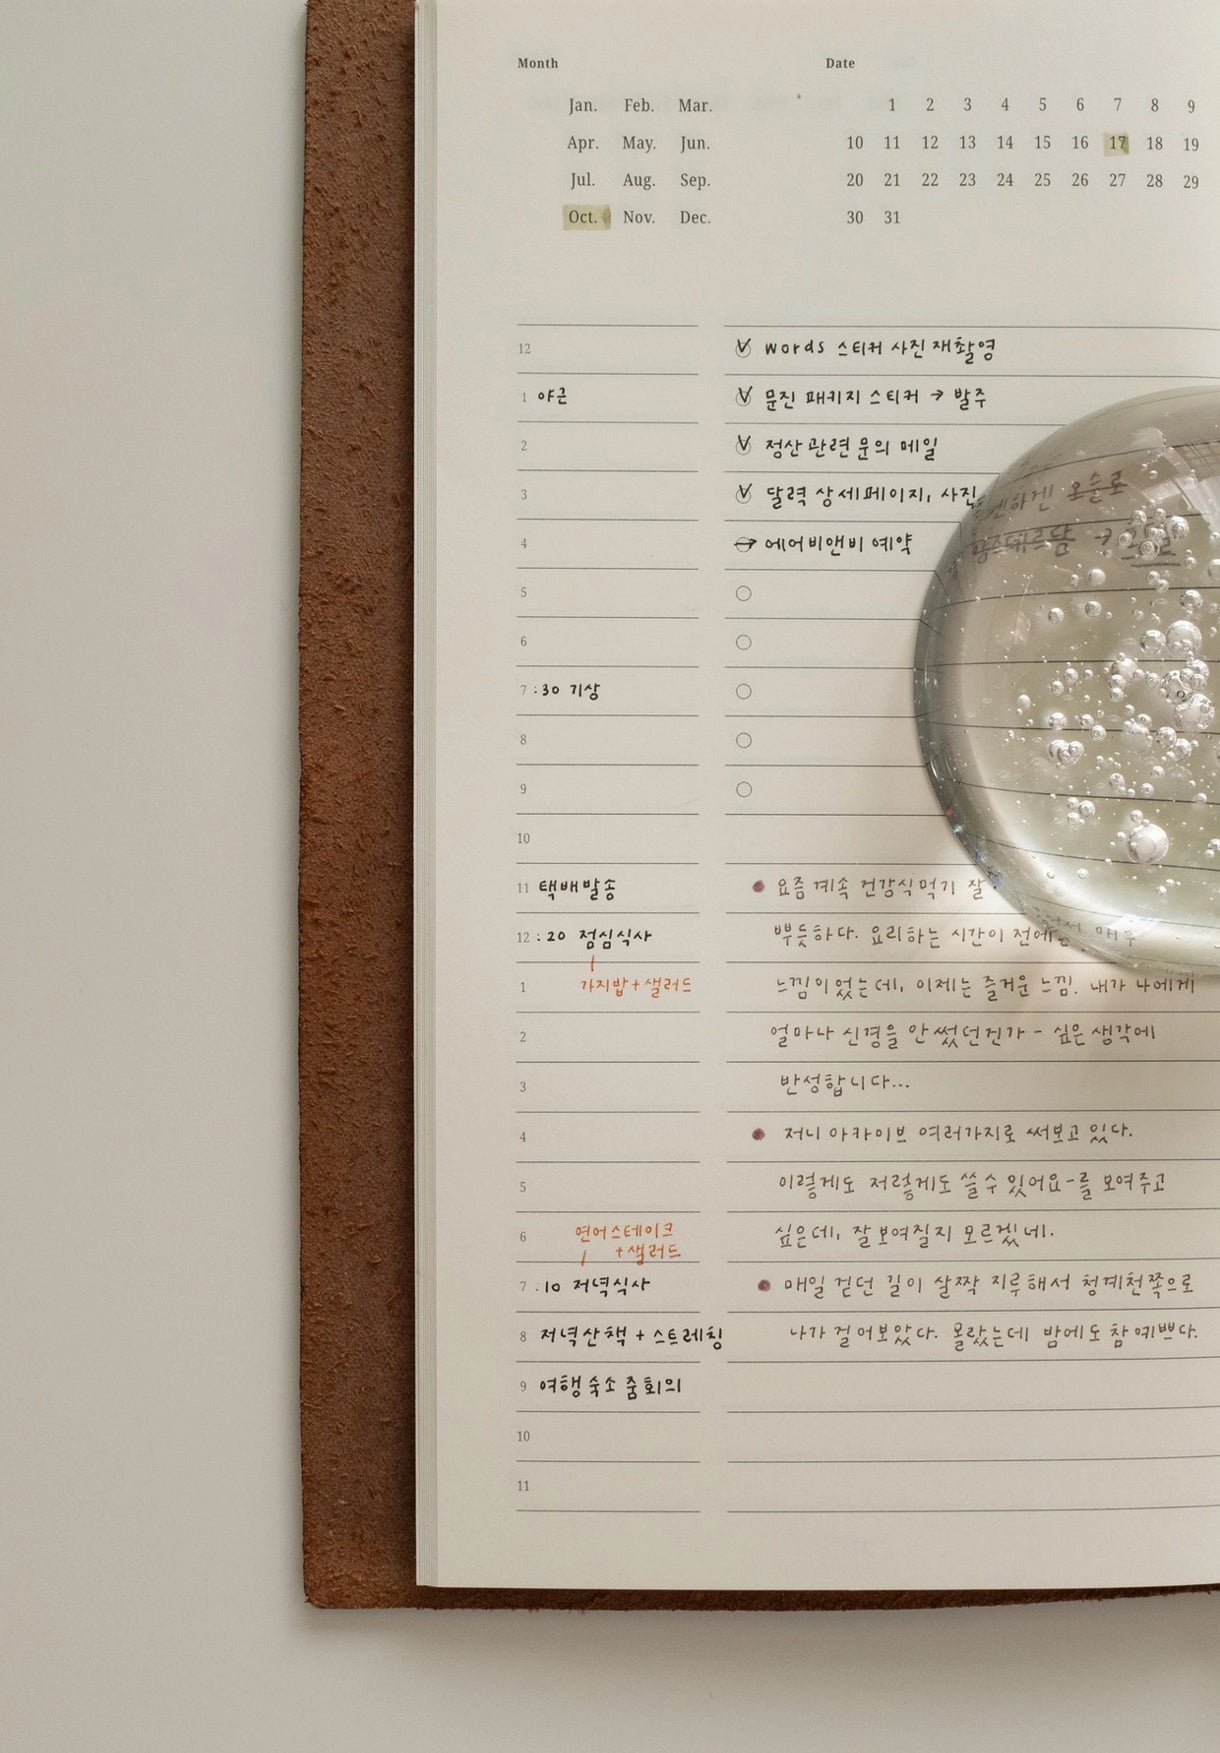 Month Date
Jan. Feb. Mar.
Apr. May. Jun.
Jul. Aug. Sep.
Oct. Nov. Dec.
1 2 3 4 5 6 7 8 9
10 11 12 13 14 15 16 17 18 19
20 21 22 23 24 25 26 27 28 29
30 31
12
1 야근
2
3
4
5
6
7 :30 기상
8
9
10
11 택배발송
12 :20 점심식사
1 가지밥+샐러드
2
3
4
5
6 연어스테이크
+샐러드
7 :10 저녁식사
8 저녁산책 + 스트레칭
9 여행 숙소 줌회의
10
11
words 스티커 사진 재촬영
문진 패키지 스티커 → 발주
정산 관련 문의 메일
달력 상세페이지, 사진
에어비앤비 예약 오슬로
요즘 계속 건강식 먹기 잘
뿌듯하다. 요리하는 시간이 전에는 매우
느낌이었는데, 이제는 즐거운 느낌. 내가 나에게
얼마나 신경을 안 썼던건가 - 싶은 생각에
반성합니다...
저니 아카이브 여러가지로 써보고 있다.
이렇게도 저렇게도 쓸 수 있어요-를 보여주고
싶은데, 잘 보여질지 모르겠네.
매일 걷던 길이 살짝 지루해서 청계천쪽으로
나가 걸어보았다. 몰랐는데 밤에도 참 예쁘다.